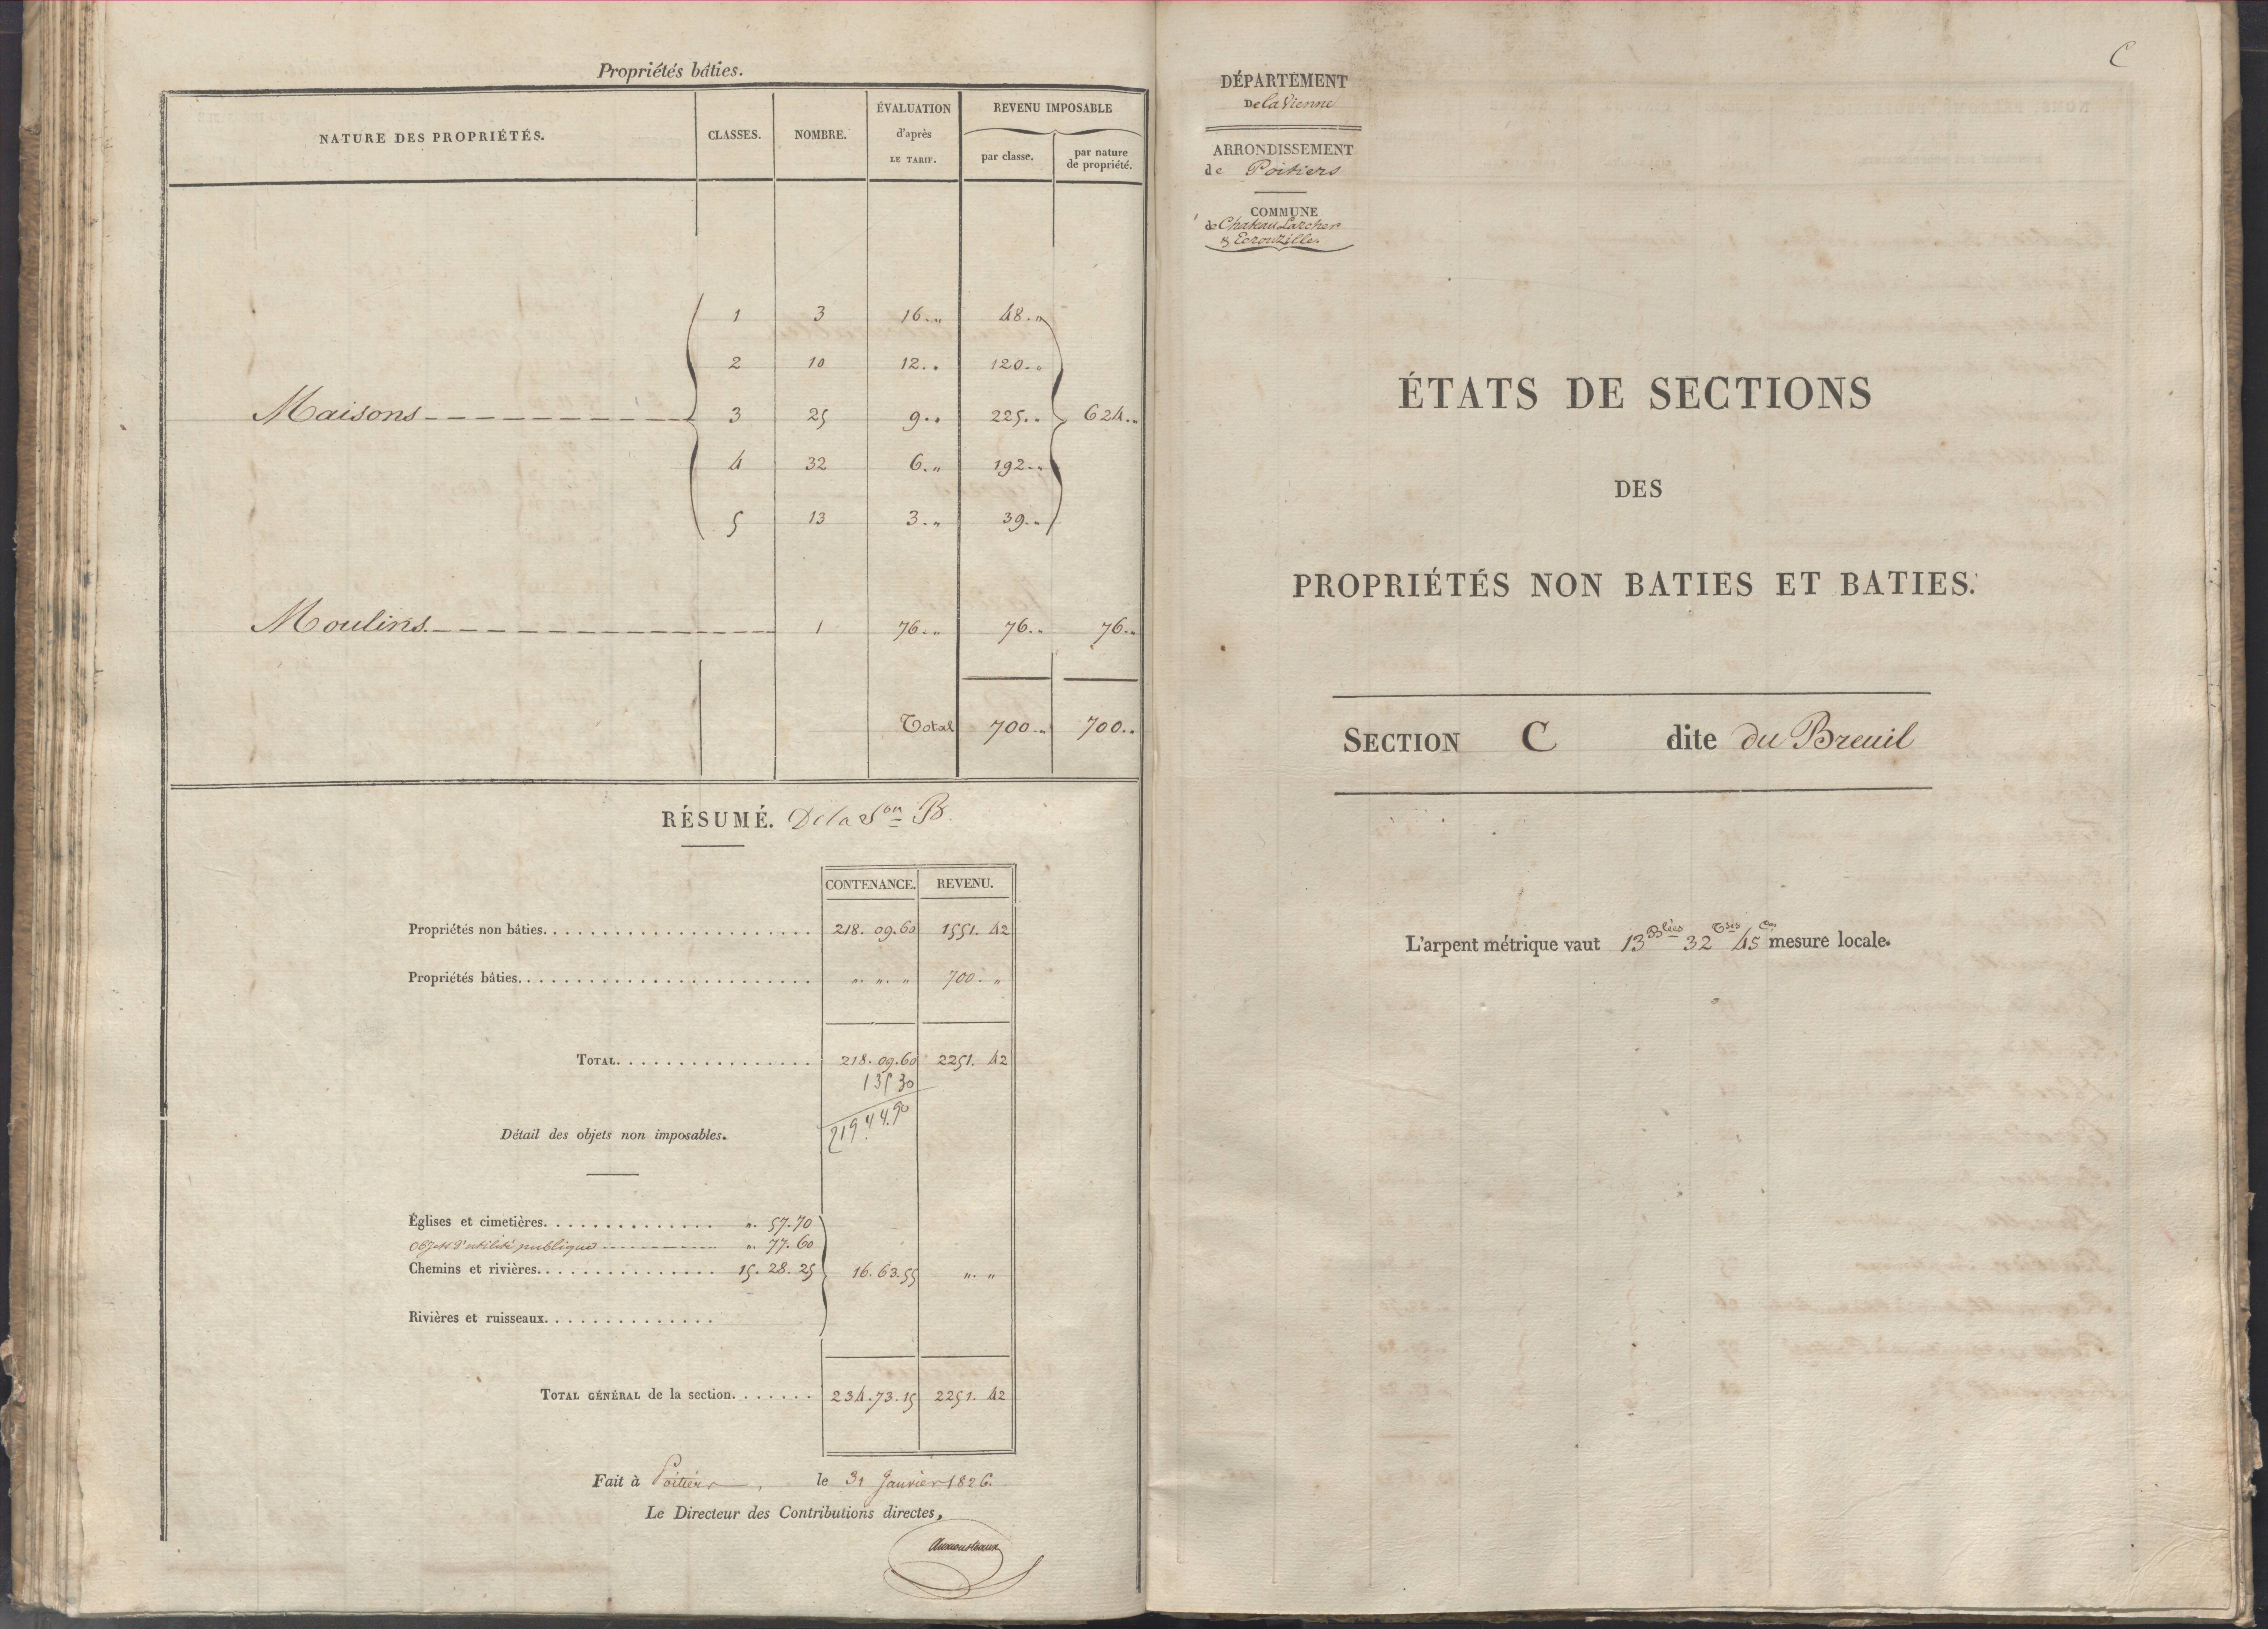 Propriétés bâties.
NATURE DES PROPRIÉTÉS. CLASSES. NOMBRE. ÉVALUATION d'après LE TARIF. REVENU IMPOSABLE
par classe. par nature de propriété.
1 3 16.„ 48.„
2 10 12.. 120.„
Maisons 3 25 9.. 225.. 624..
4 32 6.„ 192.„
5 13 3.„ 39.„
Moulins 1 76.„ 76.. 76..
Total 700.„ 700..
RÉSUMÉ. De la Son B.
CONTENANCE. REVENU.
Propriétés non bâties. 218. 09. 60 1551. 42
Propriétés bâties. „. „. „ 700. „
TOTAL. 218. 09. 60 2251. 42
135 30
219 44.90
Détail des objets non imposables.
Églises et cimetières. „. 57. 70
Objets d'utilité publique „. 77. 60
Chemins et rivières. 15. 28. 25 16. 63. 55 „. „
Rivières et ruisseaux.
TOTAL GÉNÉRAL de la section. 234. 73. 15 2251. 42
Fait à Poitiers, le 31 Janvier 1826.
Le Directeur des Contributions directes,
C
DÉPARTEMENT
De la Vienne
ARRONDISSEMENT
de Poitiers
COMMUNE
de Chateau Larcher
& Ecrouzilles
ÉTATS DE SECTIONS
DES
PROPRIÉTÉS NON BATIES ET BATIES.
SECTION C dite du Breuil
L'arpent métrique vaut 13 32 45 mesure locale.